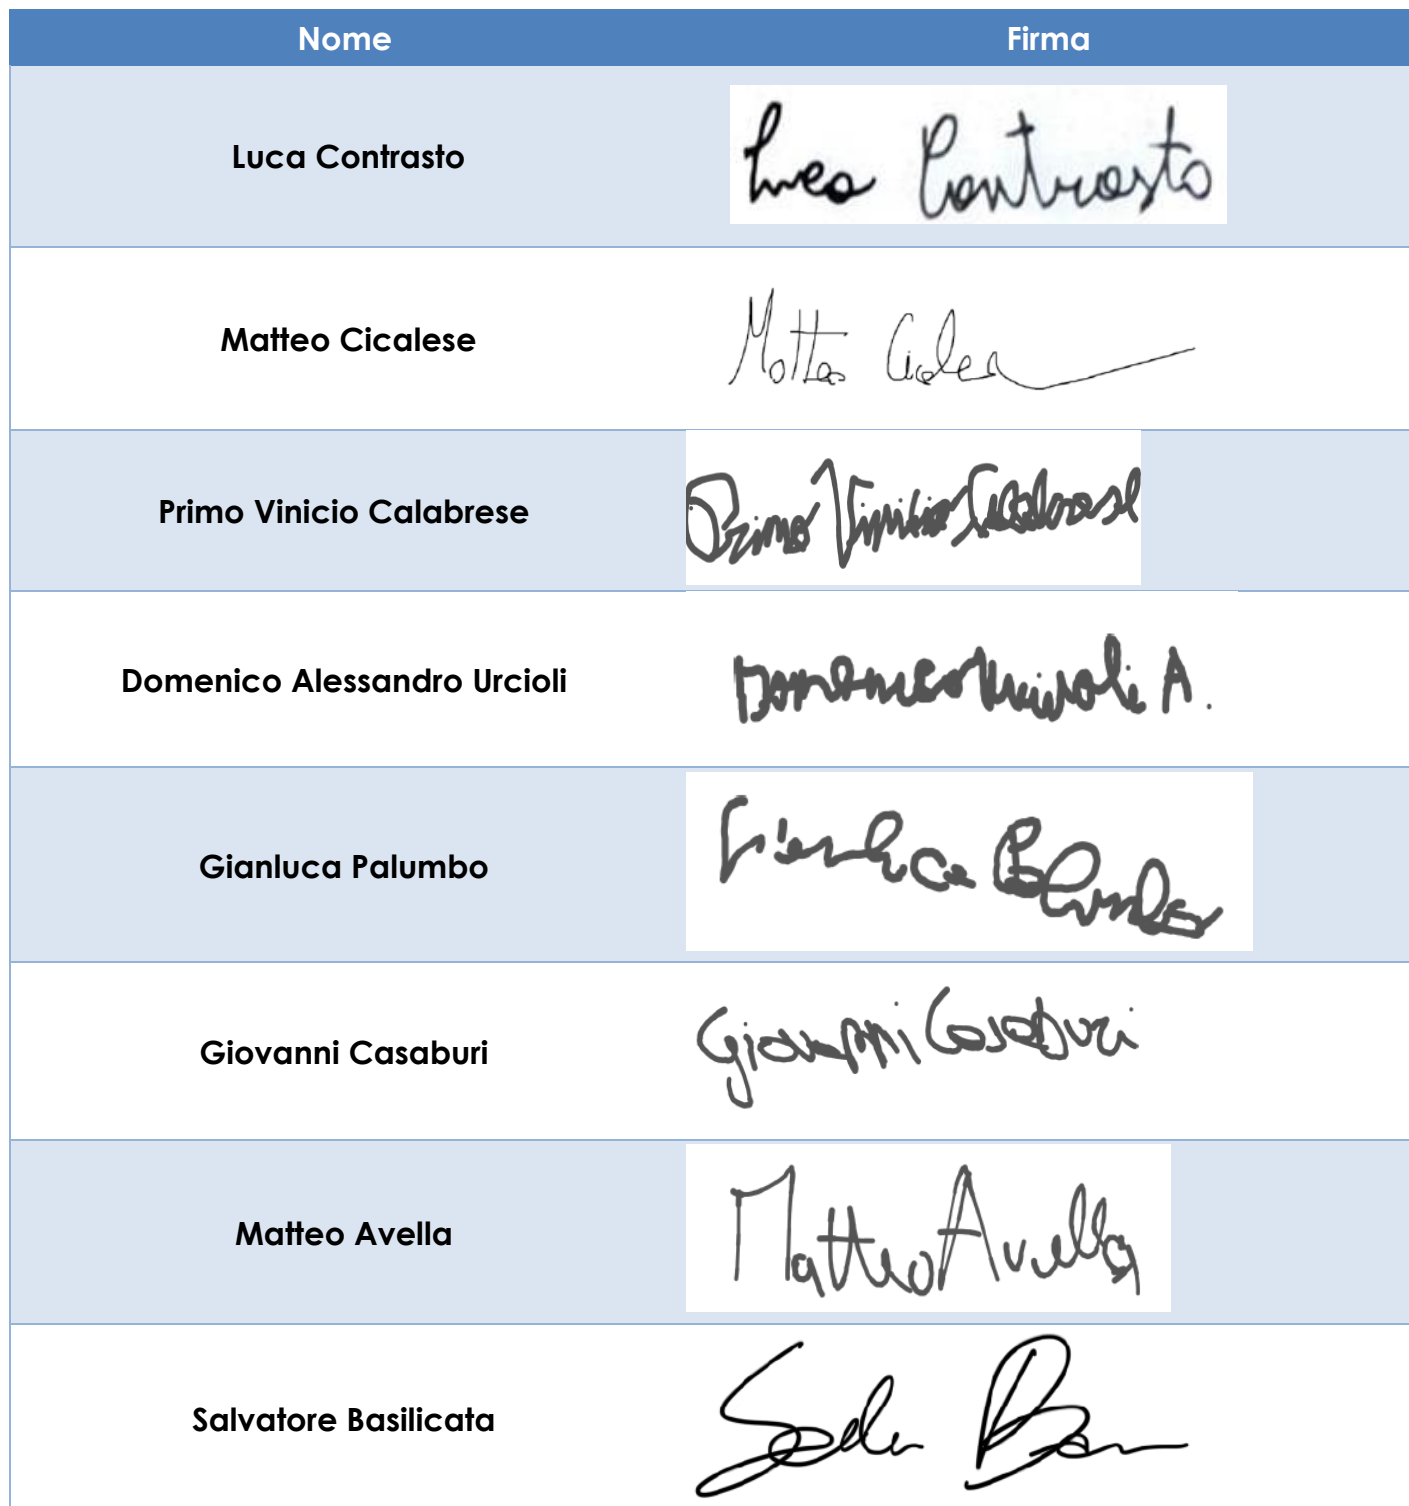 Nome Firma
Luca Contrasto Luca Contrasto
Matteo Cicalese Matteo
Primo Vinicio Calabrese Primo Vinicio Calabrese
Domenico Alessandro Urcioli Domenico Urciuoli A.
Gianluca Palumbo Gianluca Palumbo
Giovanni Casaburi Giovanni Casaburi
Matteo Avella Matteo Avella
Salvatore Basilicata